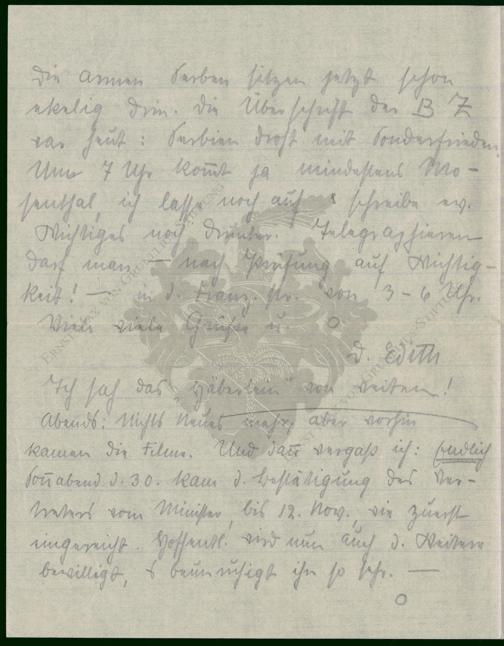 Die armen Serben sitzen jetzt schon
ekelig drin. Die Überschrift der B Z
war heut: Serbien droht mit Sonderfrieden.
Um 7 Uhr kom̄t ja mindestens Mo-
senthal, ich lasse noch auf & schreibe ev.
Wichtiges noch drunter. Telegraphieren
darf man – nach Prüfung auf Wichtig-
keit! – in d. Franz. Str. von 3–6 Uhr.
Viele viele Grüße u.
D. Edith
Ich sah das "Häberlein" von weitem!
Abends: Nichts Neues mehr, aber vorhin
kamen die Filme. Und dan̄ vergaß ich: endlich
Son̄abend d. 30. kam d. Bestätigung des Ver-
treters vom Minister, bis 12. Nov. wie zuerst
eingereicht. Hoffentl. wird nun auch d. Weitere
bewilligt, es beunruhigt ihn so sehr. –